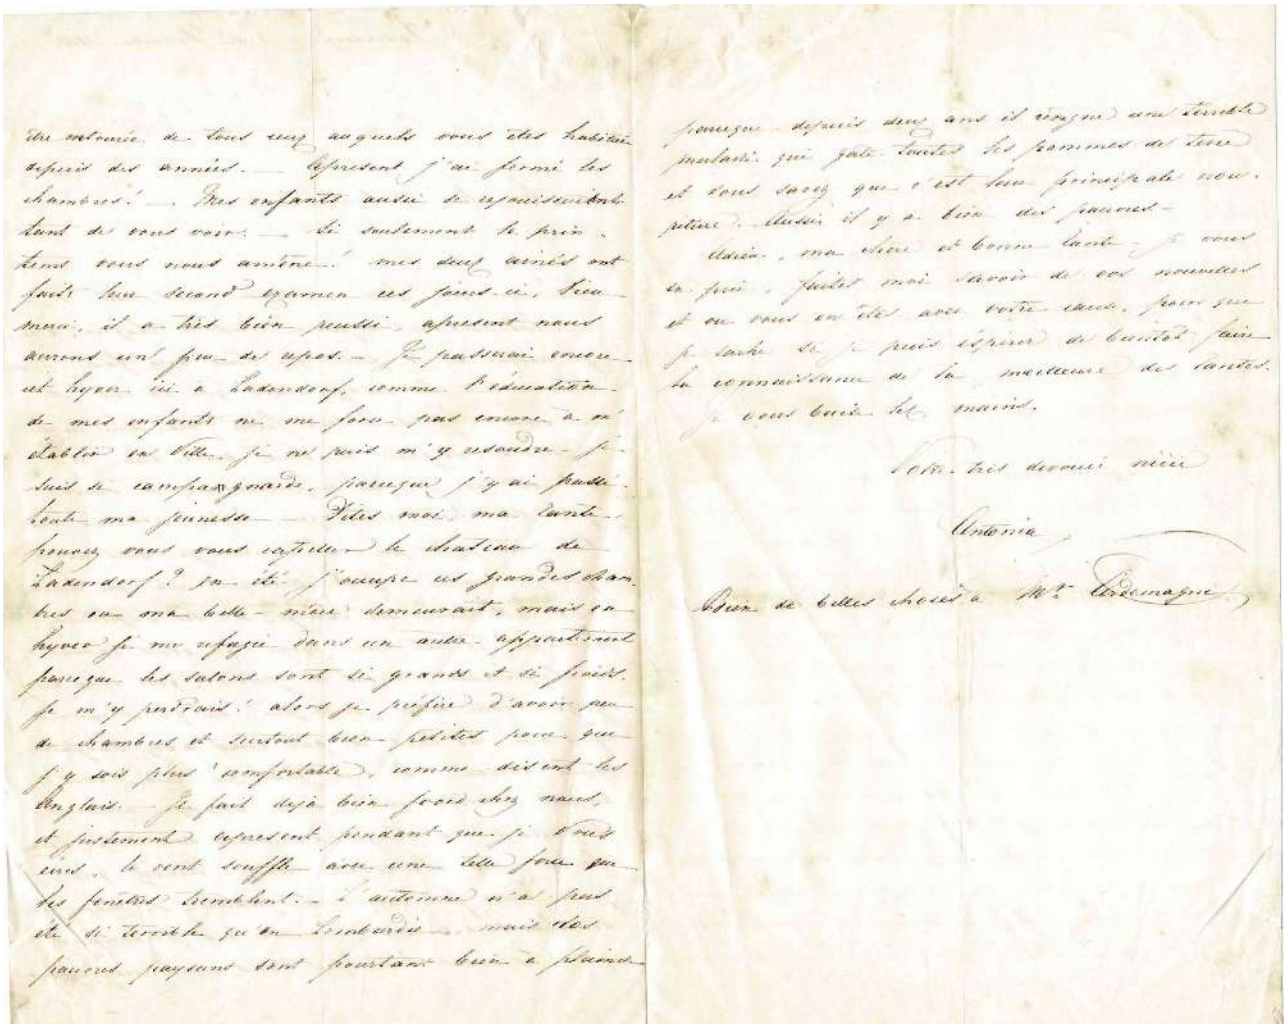 être entourée de tous ceux auquels vous êtes habituée
depuis des années. — Apresent j'ai fermé les
chambres! — Mes enfants aussi se rejouissaient
tant de vous voir. — Si seulement le prin-
tems vous nous amène! mes deux ainés ont
faits leur second examen ces jours-ci, Dieu
merci, il a très bien reussi, apresent nous
aurons un peu de repos. — Je passerai encore
cet hyver ici a Ladendorf, comme l'éducation
de mes enfants ne me force pas encore à m'
établir en Ville, je ne puis m'y resoudre — je
suis si campagnarde, parceque j'y ai passé
toute ma jeunesse — Dites moi, ma tante,
pouvez vous vous rapeller le chateau de
Ladendorf? en été j'occupe ces grandes cham-
bres ou ma belle-mère demeurait, mais en
hyver je me refugie dans un autre appartement
parceque les salons sont si grands et si froids.
Je m'y perdrais! alors je préfère d'avoir peu
de chambres et surtout bien petites pour que
j'y sois plus comfortable, comme disent les
Anglais. — Il fait deja bien froid chez nous,
et justement apresent pendant que je Vous
écris, le vent souffle avec une telle force que
les fenêtres tremblent. — L'automne n'a pas
été si terrible qu'en Lombardie mais nos
pauvres paysans sont pourtant bien à plaindre
parceque depuis deux ans il règne une terrible
maladie qui gate toutes les pommes de terre
et vous savez que c'est leur principale nou-
riture. Aussi il y a bien des pauvres —
Adieu, ma chère et bonne tante — je vous
en prie, faites moi savoir de vos nouvelles
et ou vous en êtes avec votre cause, pour que
je sache si je puis éspérer de bientôt faire
la connaissance de la meilleure des tantes.
Je vous baise les mains.
Votre très devouée nièce
Antonia
Bien de belles choses a Mr.